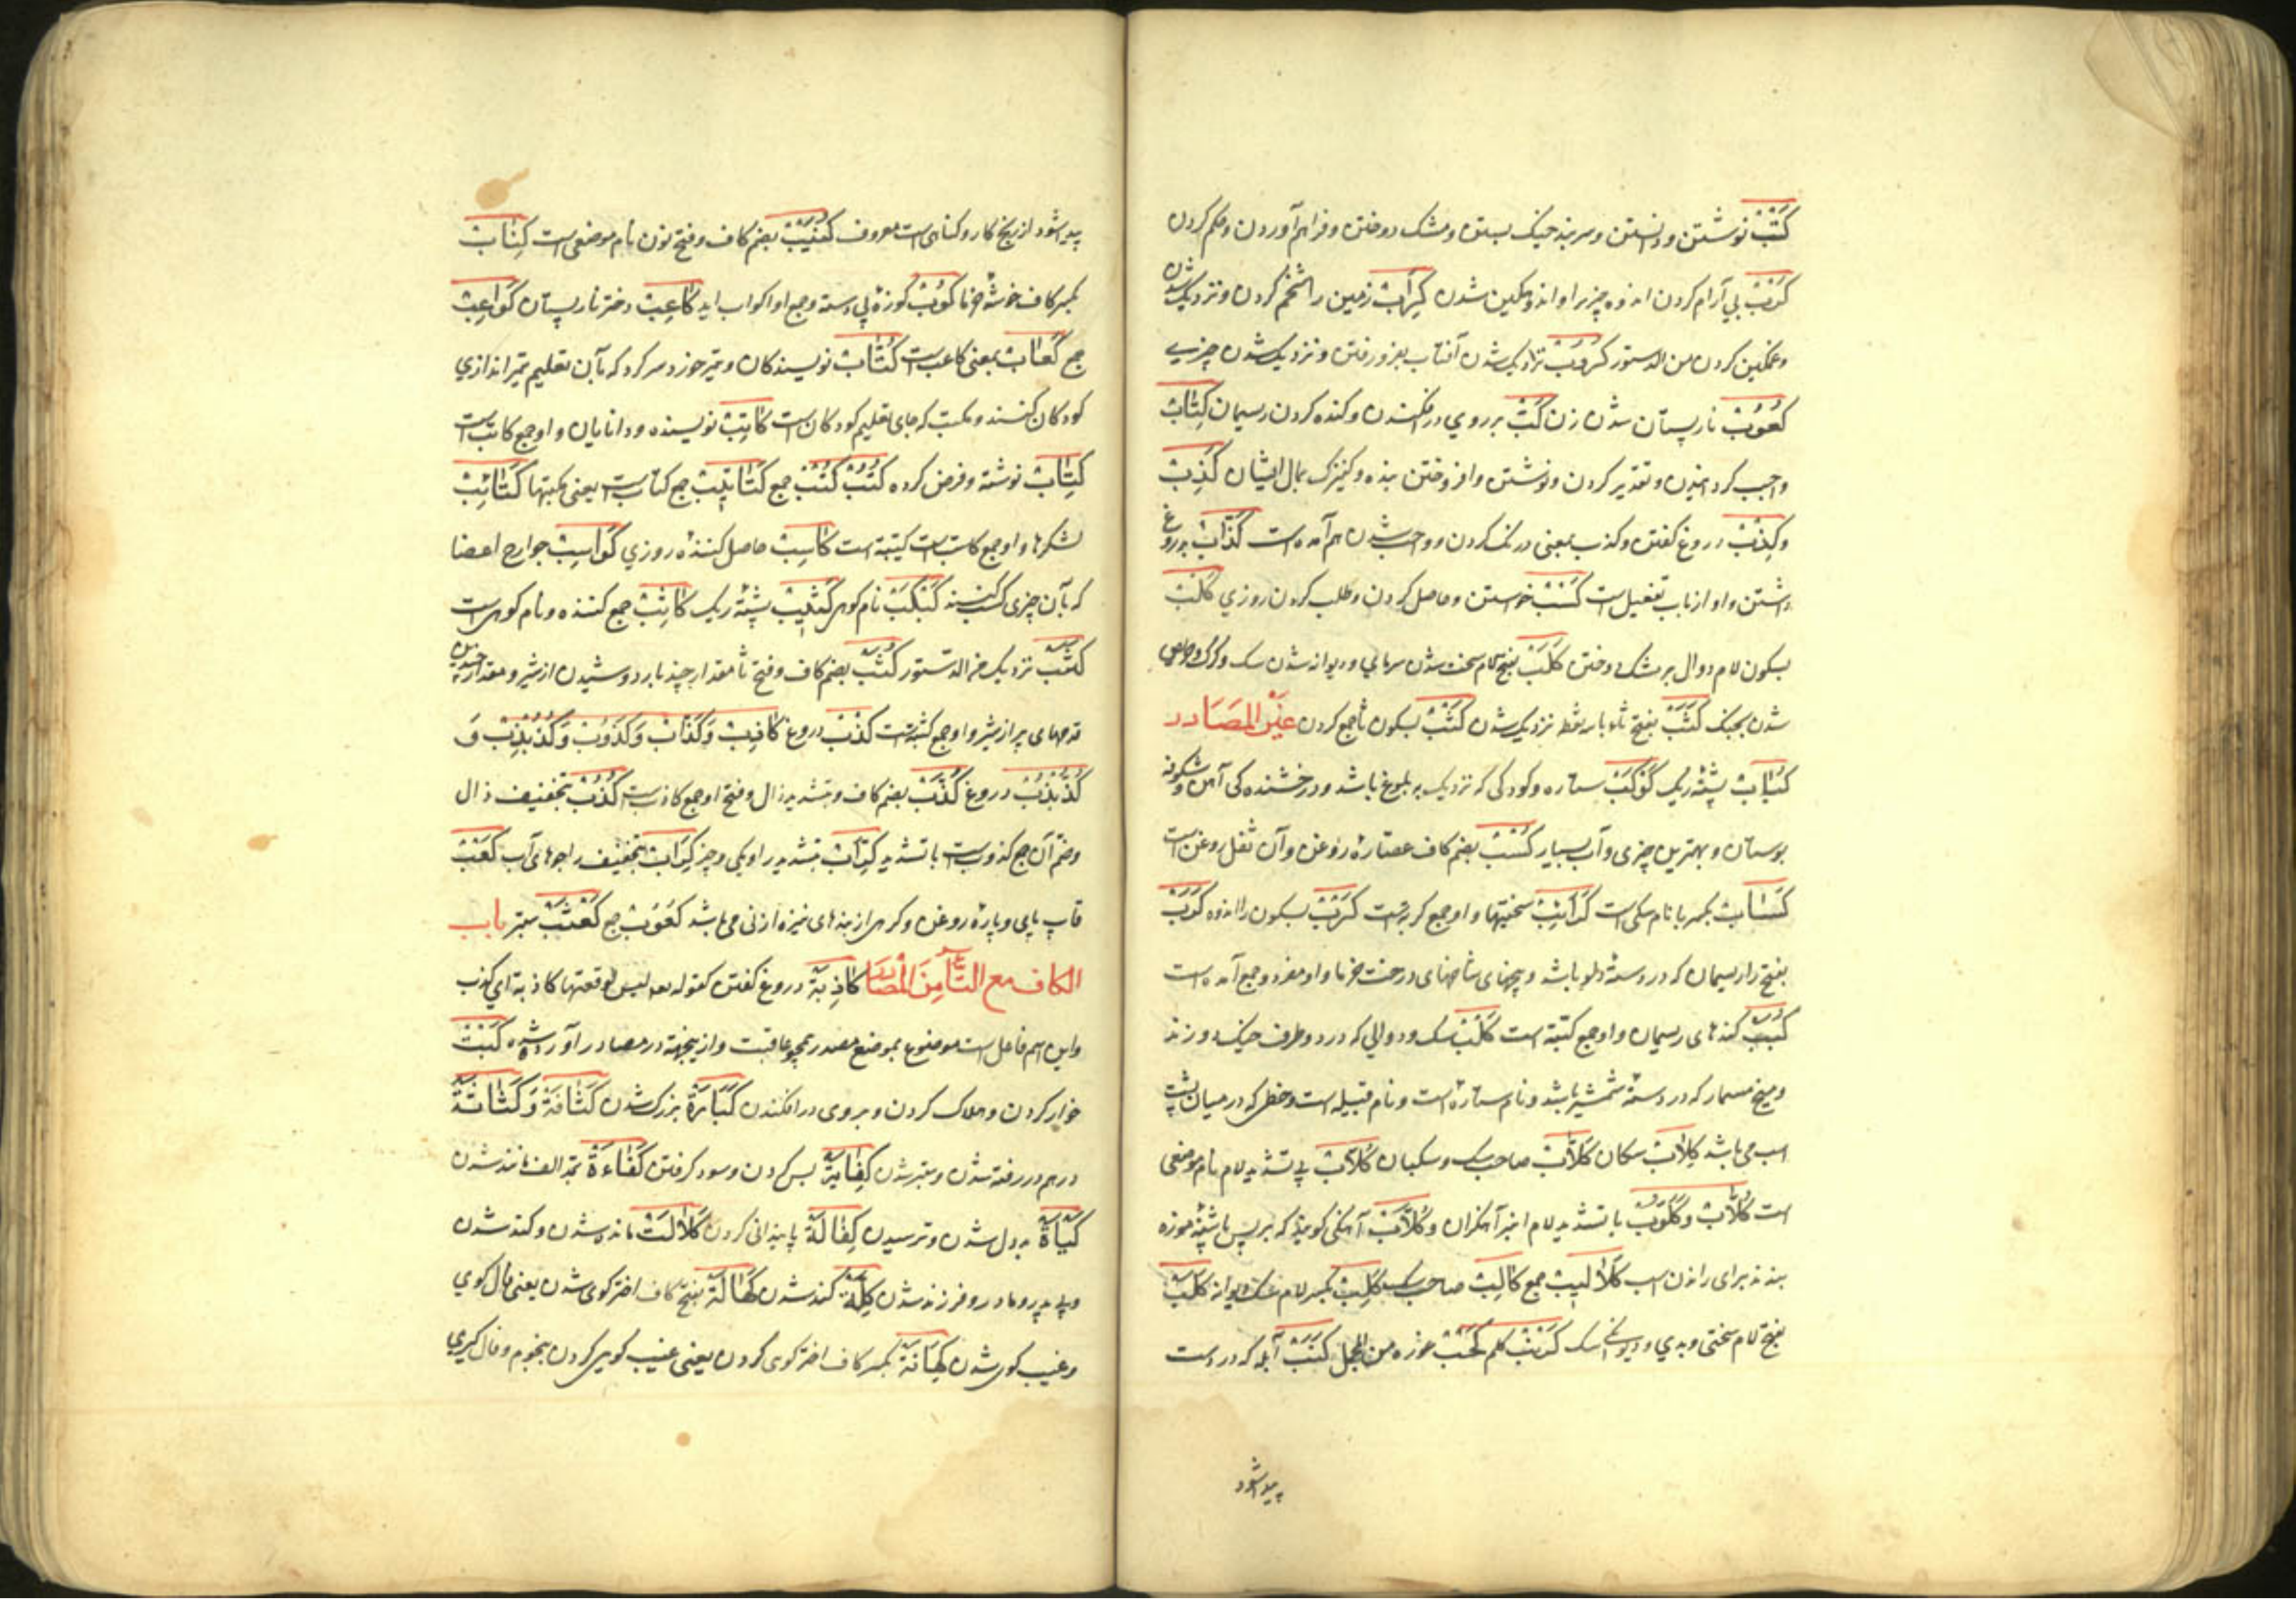 كَتْبْ نوشتن و دانستن و سربند خیک بستن و مشک دوختن و فراهم آوردن و حکم کردن
كَرْبْ بی آرام کردن اندوه چیزیرا و اندوهگین شدن كِرَابْ زمین را شخم کردن و نزدیک شدن
و غمگین کردن من الدستور كُروبْ نزدیک شدن آفتاب بفرو رفتن و نزدیک شدن چیزے
كُعُوبْ نارپستان شدن زن كَبّْ بر روی در افکندن و کنده کردن ریسمان كِتَابْ
واجب کردانیدن و تقدیر کردن و نوشتن و افروختن بنده و کنیزک بمال ایشان كَذِبْ
وكِذْبْ دروغ کفتن و کذب بمعنی درنک کردن و واجب شدن هم آمده است كِذَّابْ بدروغ
داشتن و او از باب تفعیل است كَسْبْ خواستن و حاصل کردن و طلب کردن روزی كَلْبْ
بسکون لام دوال بر مشک دوختن كَلَبْ بفتح لام سخت شدن سرمای و دیوانه شدن سک و کرک و حریص
شدن بجنک كَثَبْ بفتح ثاء نزدیک شدن كَثْبْ بسکون ثا جمع کردن غَيْرُ المَصَادر
پشتهٔ ریک كَوْكَبْ ستاره و کودکی که نزدیک به بلوغ باشد و درخشنده کی آهن و شکوفه
بوستان و بهترین چیزی و آب بسیار كُسْبْ بضم کاف عصارهٔ روغن و آن ثفل روغن است
بکسر با نام سکی است كَرَائِبْ سختیها و او جمع کربة است كَرْبْ بسکون را اندوه كَرَبْ
بفتح را ریسمان که در دستهٔ دلو باشد و بیخهای شاخهای درخت خرما و او مفرد و جمع آمده است
كُبَبْ کندهای ریسمان و او جمع کبّة است كَلْبْ سک و دوالی که در دو طرف خیک دوزند
و میخ مسمار که در دستهٔ شمشیر باشد و نام ستاره است و نام قبیله است و خطی که در میان پشت
اسب می باشد كِلَابْ سکان كَلَّابْ صاحب سک و سکبان كُلَابْ بی تشدید لام نام موضعی
است كُلَّابْ وكَلُّوبْ با تشدید لام انبر آهنکران و كُلَّابْ آهنکی کویند که بر پس پاشنهٔ موزه
بندند برای راندن اسب كَلَالِيبْ جمع كَالِبْ صاحب سک كَلِبْ بکسر لام سک دیوانه كَلَبْ
بفتح لام سختی و بدی و دیوانکی سک كُرُنْبْ کلم كَحْبْ غوره من المجمل كَنَبْ آبله که در دست
پیدا شود
پیدا شود از بیخ کار و کیاهی است معروف كُنَيْبْ بضم کاف و فتح نون نام موضعی است كِنَابْ
بکسر کاف خوشهٔ خرما كُوبْ کوزهٔ بی دسته و جمع او اکواب آید كَاعِبْ دختر نارپستان كَوَاعِبْ
جمع كَعَابْ بمعنی کاعب است كُتَّابْ نویسندکان و تیر خورد سر کرد که بآن تعلیم تیر اندازی
کودکان کنند و مکتب که جای تعلیم کودکان است كَاتِبْ نویسنده و دانایان و او جمع کاتب است
كِتَابْ نوشته و فرض کرده كُتُبْ كُتْبْ جمع كَتَاتِيبْ جمع کتّاب است یعنی مکتبها كَتَائِبْ
لشکرها و او جمع کتیبة است كَاسِبْ حاصل کننده روزی كَوَاسِبْ جوارح اعضا
که بآن چیزی کسب کنند كَبْكَبْ نام کوهی كَثِيبْ پشتهٔ ریک كَاثِبْ جمع کننده و نام کوهی است
كَثَبْ نزدیک من الدستور كُثَبْ بضم کاف و فتح ثا مقدار چند بار دوشیدن از شیر و مقدار
قدحهای پر از شیر و او جمع کثبة است كَذْبْ دروغ كَاذِبْ وَكَذَّابْ وَكَذُوبْ وَكُذُبْذِبْ وَ
كُذُّبْذُبْ دروغ كُذَّبْ بضم کاف و تشدید ذال و فتح او جمع کاذب است كُذُبْ بتخفیف ذال
و ضم آن جمع کذوب است با تشدید كِرَابْ بتخفیف را جوهای آب كَعْبْ
قاب پای و پارهٔ روغن و کرهی از بندهای نیزه از نی می باشد كُعُوبْ جمع كَعْثَبْ ستبر باب
الكاف مع التاء مِنَ المصَادر كَاذِبة دروغ کفتن کقوله تعالی لیس لوقعتها کاذبة ای کذب
و این اسم فاعل است موضوع بموضع مصدر همچو عاقبت و ازینجهت در مصادر آورده شد كَبْتْ
خوار کردن و هلاک کردن و بروی در افکندن كَبَارَة بزرک شدن كَثَافَة وَكَثَاثَة
درهم در رفته شدن و ستبر شدن كِفَايَة بس کردن و سود کرفتن كَفَاءَة بمد الف مانند شدن
كَيْأَة بد دل شدن و ترسیدن كِفَالَة پایندانی کردن كَلَالَتْ مانده شدن و کند شدن
و بی پدر و مادر و فرزند شدن كِلَّة کند شدن كَهَالَة بفتح کاف اختر کوی شدن یعنی فال کوی
و غیب کوی شدن كِهَانَة بکسر کاف اختر کوی کردن یعنی غیب کویی کردن بنجوم و فال کیری